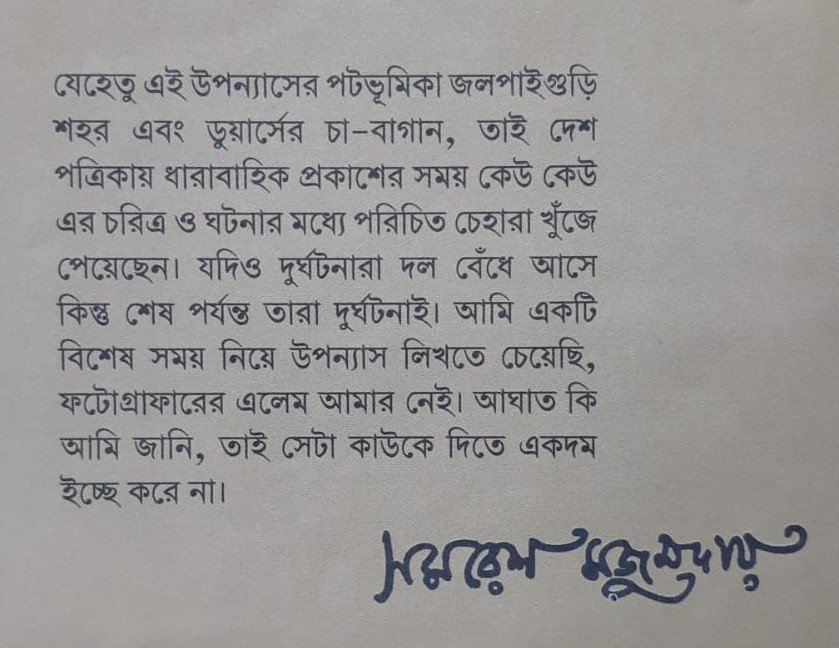 যেহেতু এই উপন্যাসের পটভূমিকা জলপাইগুড়ি
শহর এবং ডুয়ার্সের চা-বাগান, তাই দেশ
পত্রিকায় ধারাবাহিক প্রকাশের সময় কেউ কেউ
এর চরিত্র ও ঘটনার মধ্যে পরিচিত চেহারা খুঁজে
পেয়েছেন। যদিও দুর্ঘটনারা দল বেঁধে আসে
কিন্তু শেষ পর্যন্ত তারা দুর্ঘটনাই। আমি একটি
বিশেষ সময় নিয়ে উপন্যাস লিখতে চেয়েছি,
ফটোগ্রাফারের এলেম আমার নেই। আঘাত কি
আমি জানি, তাই সেটা কাউকে দিতে একদম
ইচ্ছে করে না।
সমরেশ মজুমদার